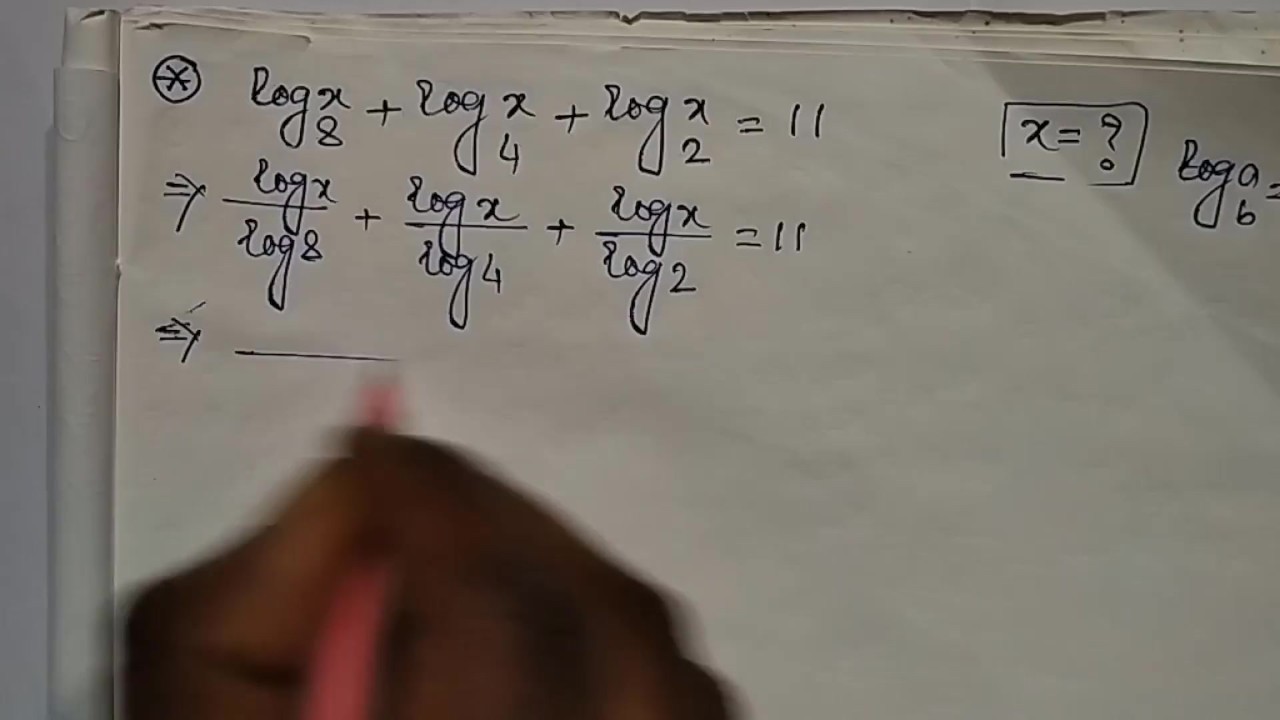 ⊛ log₈x + log₄x + log₂x = 11
x = ?
log_b a =
⇒ logx/log8 + logx/log4 + logx/log2 = 11
⇒